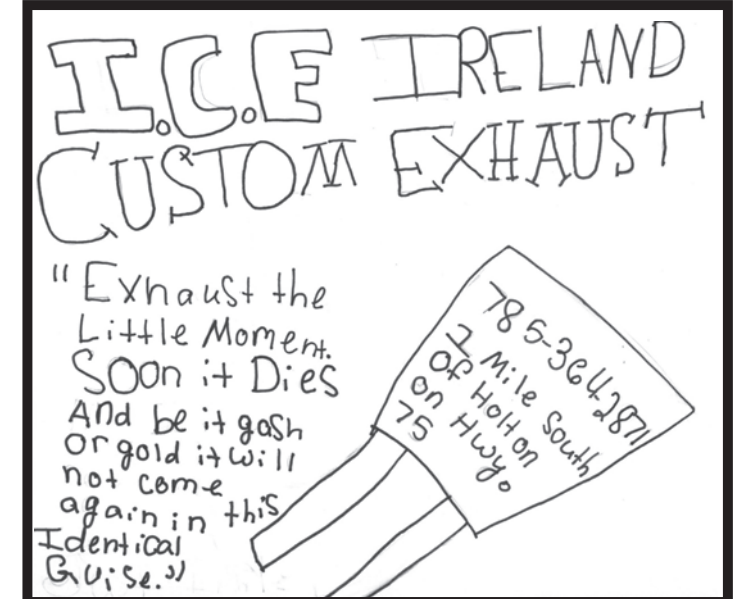 I.C.E IRELAND
CUSTOM EXHAUST
"Exhaust the
Little Moment.
Soon it Dies
And be it gash
or gold it will
not come
again in this
Identical
Guise."
785-364-2871
1 Mile South
Of Holton
on Hwy.
75